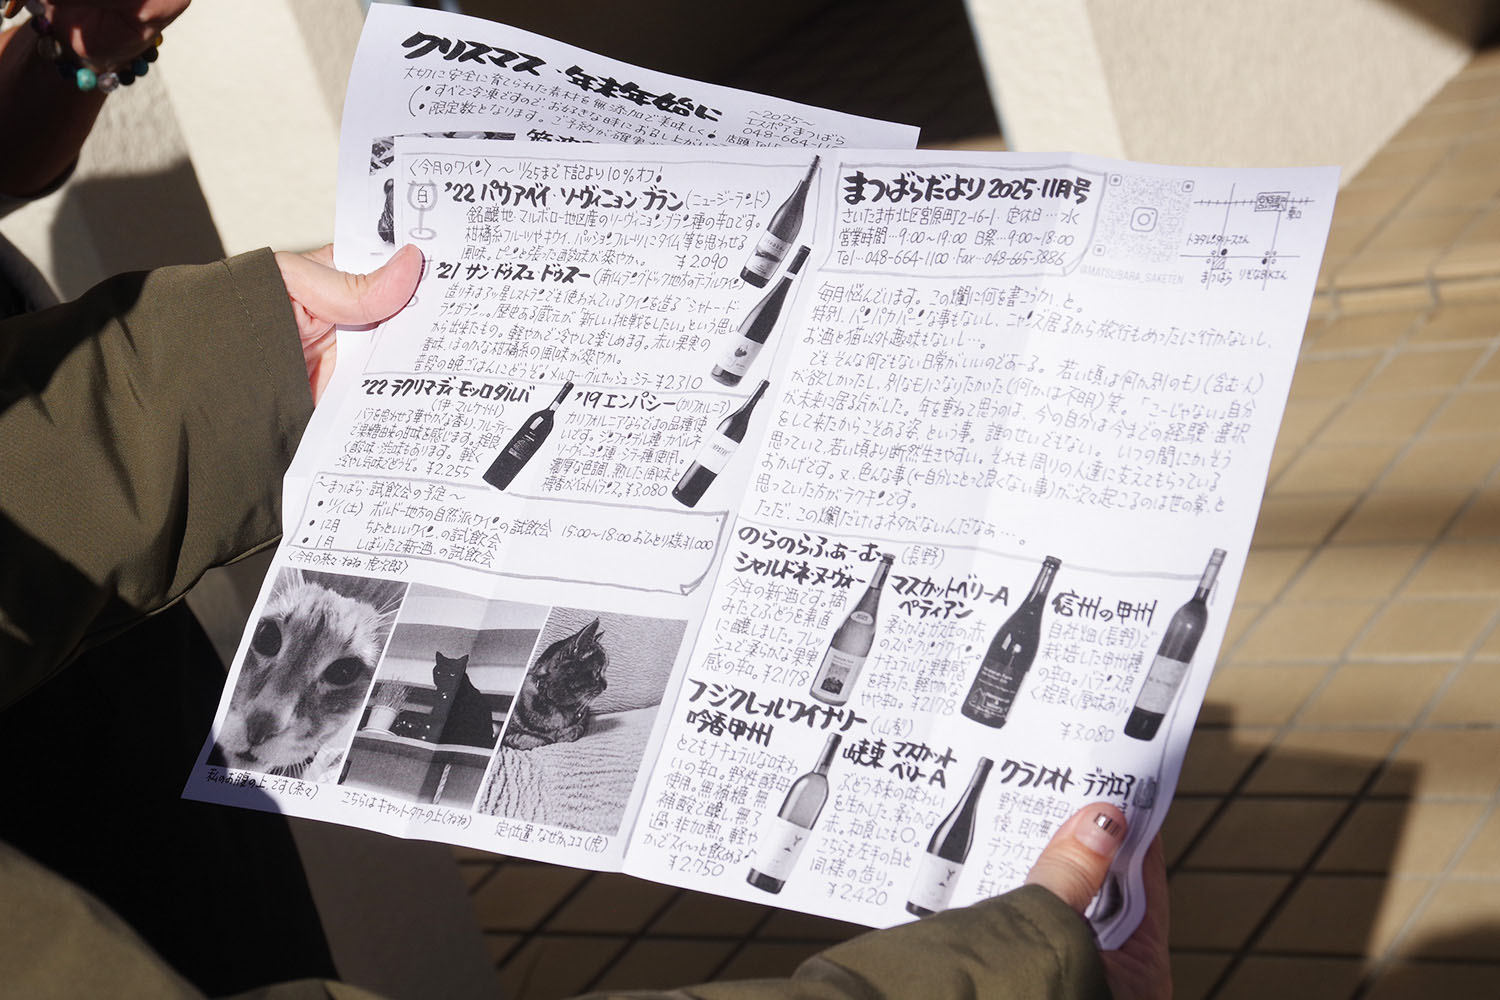 クリスマス・年末年始に
大切に安全に育てられた素材を無添加で美味しく!
・すべて冷凍ですので、お好きな時にお召し上がり
・限定数となります。ご予約が確実
～2025～
エスポアまつばら
048-664-11
〈今月のワイン〉 ～ 11/25まで下記より10%オフ!
白
'22 パウアベイ・ソーヴィニョンブラン(ニュージーランド)
銘醸地・マルボロー地区産のソーヴィニョンブラン種の辛口です。
柑橘系フルーツやキウイ、パッションフルーツにタイム等を思わせる
風味。ピンと張った酸味が爽やか。 ¥2,090
'21 サンドゥスュドゥスー(南仏ラングドック地方のテーブルワイン)
造り手は三ツ星レストランでも使われているワインを造る
から出来たもの。軽やかで冷やして楽しめます。赤い果実の
香味、ほのかな柑橘系の風味が爽やか。
普段の晩ごはんにどうぞ♪ メルロー・グルナッシュ・シラー ¥2,310
'22 ラクリマ・ディ・モッロダルバ
(伊・マルケ州)
バラを思わせる華やかな香り、フルーティー
で果糖由来の甘味を感じます。程良
く酸味・渋味もあります。軽く
冷やし気味でどうぞ。 ¥2,255
'19 エンパシー(カリフォルニア)
カリフォルニアならではの品種使
いです。ジンファンデル種・カベルネ
ソーヴィニョン種・シラー種使用。
濃厚な色調、熟した風味と
樽香がベストバランス。¥3,080
～まつばら・試飲会の予定～
・11/1(土) ボルドー地方の自然派ワインの試飲会
・12月 ちょっといいワインの試飲会
・1月 しぼりたて新酒の試飲会
15:00～18:00 おひとり様¥1,000
〈今月の茶々・ねね・虎次郎〉
私のお腹の上、です(茶々)
こちらはキャットタワーの上(ねね)
定位置、なぜかココ(虎)
まつばらだより 2025・11月号
さいたま市北区宮原町2-16-1 定休日…水
営業時間…9:00～19:00 日祭…9:00～18:00
Tel…048-664-1100 Fax…048-665-3886
@MATSUBARA_SAKETEN
東口
まつばら
りそな銀行さん
毎月悩んでいます。この欄に何を書こうか、と。
特別、パンパカパーンな事もないし、ニャンズ居るから旅行もめったに行かないし、
お酒と猫以外趣味もないし…。
でもそんな何でもない日常がいいのであーる。若い頃は何か別のモノ(含む・人)
が欲しかったし、別なモノになりたかった(何かは不明)笑。「こーじゃない」自分
が未来に居る気がした。年を重ねて思うのは、今の自分は今までの経験・選択
をして来たからこそある姿、という事。誰のせいでもない。いつの間にかそう
思っていて、若い頃より断然生きやすい。それも周りの人達に支えてもらっている
おかげです。又、色んな事(←自分にとって良くない事)が次々起こるのは世の常、と
思っていた方がラクチンです。
ただ、この欄だけはネタがないんだなぁ…。
のらのらふぁーむ (長野)
シャルドネ・ヌーヴォー
今年の新酒です。摘
みたてぶどうを素直
に醸しました。フレッ
シュで柔らかな果実
感の辛口。¥2,178
マスカットベリーA
ペティアン
柔らかなガス圧の赤
のスパークリングワイン。
ナチュラルな果実感
を持った、軽やかな
やや辛口。¥2,178
信州の甲州
自社畑(長野)で
栽培した甲州種
の辛口。バランス良
く程良い厚味あり。
¥3,080
フジクレールワイナリー (山梨)
吟香甲州
とてもナチュラルな味わ
いの辛口。野性酵母
使用。無補糖・無
補酸で醸し、無ろ
過・非加熱。軽や
かでスイ～っと飲める♪
¥2,750
峡東マスカット
ベリーA
ぶどう本来の味わい
を生かした、柔らかな
赤。和食にも〇。
こちらも左手の白と
同様の造り。
¥2,420
クラノオト・デラウェア
野性酵母
後、即・無
デラウェ
とジュー